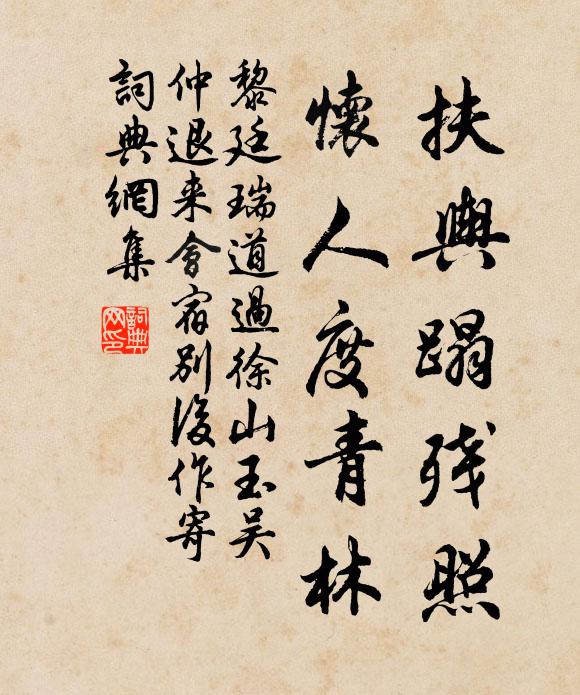 扶輿蹋残照
懷人度青林
黎廷瑞道過徐山玉吴
仲退来會宿别後作寄
詞典網集
詞典
网印